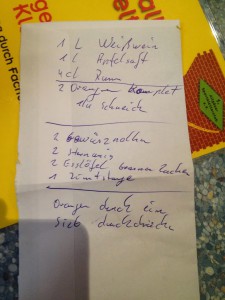 1 L Weißwein
1 L Apfelsaft
4 cl Rum
2 Orangen komplet
schneide
2 Gewürznelken
2 Sternanis
2 Esslöfel braunen Zucker
1 Zimtstange
Orangen durch ein
Sieb durchdrücken
durch Fache